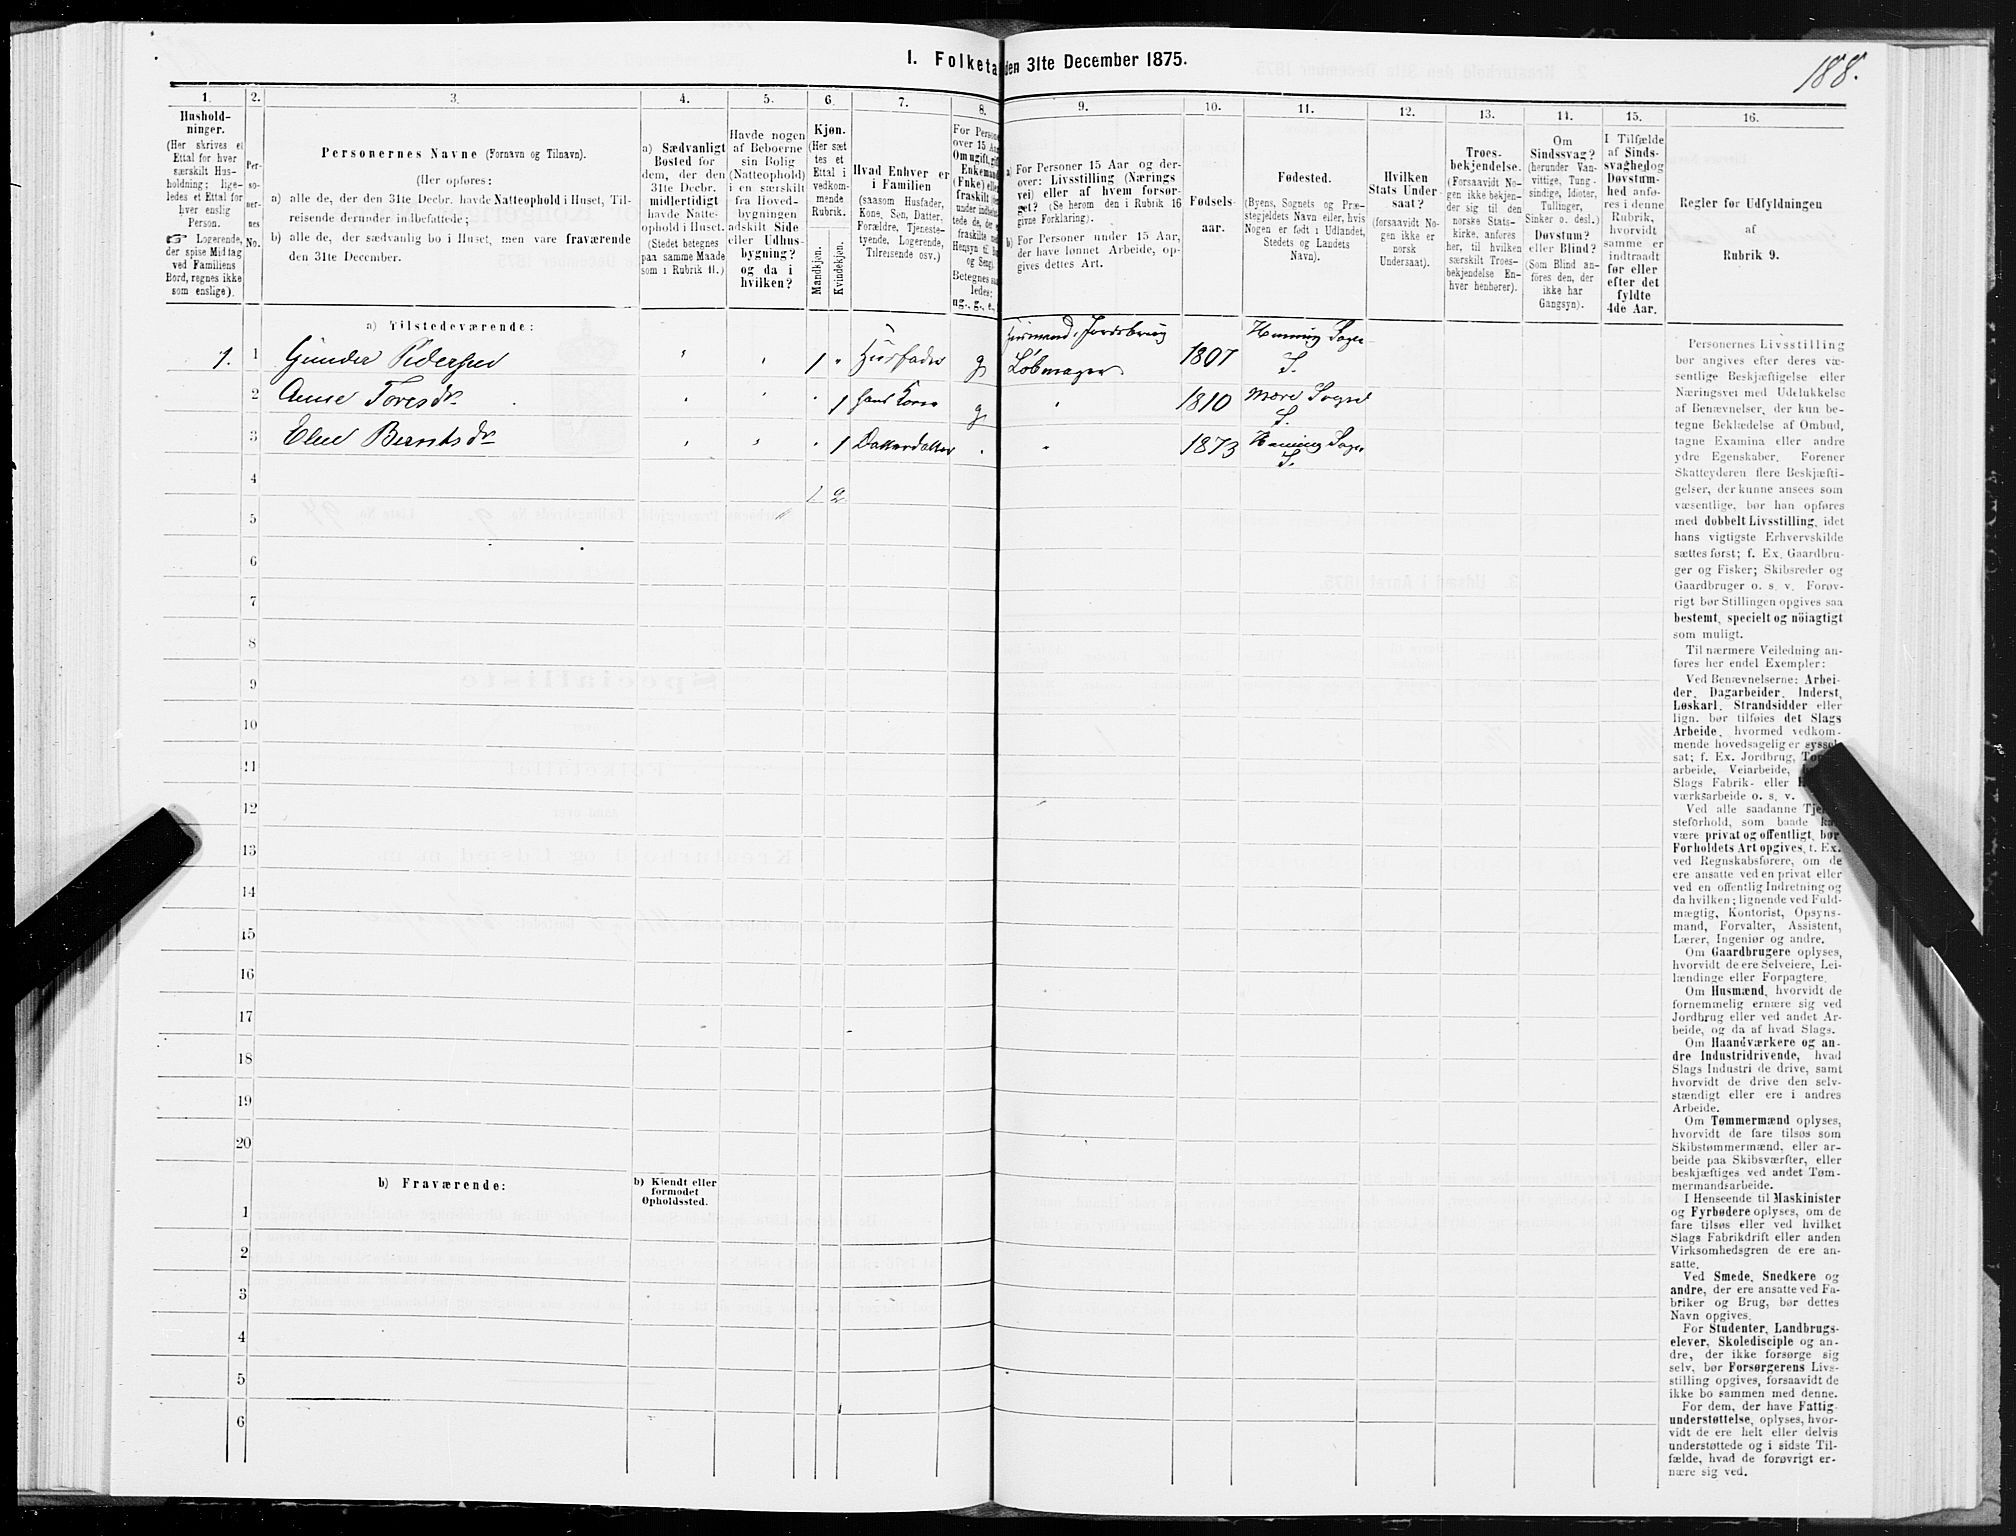 188.
I. Folketa den 31te December 1875.
1.
Hushold-
ninger.
(Her skrives et
Ettal for hver
særskilt Hus-
holdning; lige-
ledes et Ettal for
hver enslig
Person.
☞ Logerende,
der spise Middag
ved Familiens
Bord, regnes ikke
som enslige).
2.
Per-
so-
ner-
nes
No.
3.
Personernes Navne (Fornavn og Tilnavn).
(Her opføres:
a) alle de, der den 31te Decbr. havde Natteophold i Huset, Til-
reisende derunder indbefattede;
b) alle de, der sædvanlig bo i Huset, men vare fraværende
den 31te December.
4.
a) Sædvanligt
Bosted for
dem, der den
31te Decbr.
midlertidigt
havde Natte-
ophold i Huset.
(Stedet betegnes
paa samme Maade
som i Rubrik 11.)
5.
Havde nogen
af Beboerne
sin Bolig
(Natteophold)
i en særskilt
fra Hoved-
bygningen
adskilt Side-
eller Udhus-
bygning?
og da i
hvilken?
6.
Kjøn.
(Her sæt
tes et
Ettal i
vedkom-
mende
Rubrik.
Mandkjøn.
Kvindekjøn.
7.
Hvad Enhver er
i Familien
(saasom Husfader,
Kone, Søn, Datter,
Forældre, Tjeneste-
tyende, Logerende,
Tilreisende osv.)
8.
For Persone
over 15 Aar
Om ugift, gift
Enkemand
(Enke) elle
fraskilt
ug., g., e.,
9.
a) For Personer 15 Aar og der-
over: Livsstilling (Nærings
vei) eller af hvem forsør-
get? (Se herom den i Rubrik 16
givne Forklaring).
b) For Personer under 15 Aar,
der have lønnet Arbeide, op-
gives dettes Art.
10.
Fødsels-
aar.
11.
Fødested.
(Byens, Sognets og Præ-
stegjeldets Navn eller, hvis
Nogen er født i Udlandet,
Stedets og Landets
Navn).
12.
Hvilken
Stats Under-
saat?
(forsaavidt No-
gen ikke er
norsk
Undersaat).
13.
Troes-
bekjendelse.
(Forsaavidt No-
gen ikke bekjen-
der sig til den
norske Stats-
kirke, anføres
her, til hvilken
særskilt Troes-
bekjendelse En-
hver henhører).
14.
Om
Sindssvag?
(herunder Van-
vittige, Tung-
sindige, Idioter,
Tullinger,
Sinker o. desl.)
Døvstum?
eller Blind?
(Som Blind an-
føres den, der
ikke har
Gangsyn).
15.
I Tilfælde
af Sinds-
svaghed og
Døvstum-
hed anfø-
res i denne
Rubrik,
hvorvidt
samme er
indtraadt
før eller
efter det
fyldte
4de Aar.
16.
Regler for Udfyldningen
af
Rubrik 9.
a) Tilstedeværende:
1. 1 Gunder Pedersen " " 1 " Husfader g Husmand, Jordbrug Løbmager 1807 Henning Sogn S.
2 Anne Toresdr. " " " 1 hans Kone g " 1810 Mære Sogn S.
3 Elen Berntsdr " " " 1 Datterdatter " " 1873 Henning Sogn S.
4
1. 2.
5
6
7
8
9
10
11
12
13
14
15
16
17
18
19
20
b) Fraværende:
b) Kjendt eller
formodet
Opholdssted.
1
2
3
4
5
6
Personernes Livsstilling
bør angives efter deres væ-
sentlige Beskjæftigelse eller
Næringsvei med Udelukkelse
af Benævnelser, der kun be-
tegne Beklædelse af Ombud,
tagne Examina eller andre
ydre Egenskaber. Forener
Skatteyderen flere Beskjæfti-
gelser, der kunne ansees som
væsentlige, bør han opføres
med dobbelt Livsstilling, idet
hans vigtigste Erhvervskilde
sættes først; f. Ex. Gaardbru-
ger og Fisker; Skibsreder og
Gaardbruger o. s. v. Forøv-
rigt bør Stillingen opgives saa
bestemt, specielt og nöiagtigt
som muligt.
Til nærmere Veiledning an-
føres her endel Exempler:
Ved Benævnelserne: Arbei-
der, Dagarbeider, Inderst,
Løskarl, Strandsidder eller
lign. bør tilføies det Slags
Arbeide, hvormed vedkom-
mende hovedsagelig er syssel-
sat; f. Ex. Jordbrug,
arbeide, Veiarbeide,
Slags Fabrik- eller
værksarbeide o. s. v.
Ved alle saadanne
steforhold, som baade
være privat og offentligt, bør
Forholdets Art opgives, f. Ex.
ved Regnskabsførere, om de
ere ansatte ved en privat eller
ved en offentlig Indretning og
da hvilken; lignende ved Fuld-
mægtig, Kontorist, Opsyns-
mand, Forvalter, Assistent,
Lærer, Ingeniør og andre.
Om Gaardbrugere oplyses,
hvorvidt de ere Selveiere, Lei-
lændinge eller Forpagtere.
Om Husmænd, hvorvidt de
fornemmelig ernære sig ved
Jordbrug eller ved andet Ar-
beide, og da af hvad Slags.
Om Haandværkere og an-
dre Industridrivende, hvad
Slags Industri de drive, samt
hvorvidt de drive den selv-
stændigt eller ere i andres
Arbeide.
Om Tømmermænd oplyses,
hvorvidt de fare tilsøs som
Skibstømmermænd, eller ar-
beide paa Skibsværfter, eller
beskjæftiges ved andet Tøm-
mermandsarbeide.
I Henseende til Maskinister
og Fyrbødere oplyses, om de
fare tilsøs eller ved hvilket
Slags Fabrikdrift eller anden
Virksomhedsgren de ere an-
satte.
Ved Smede, Snedkere og
andre, der ere ansatte ved Fa-
briker og Brug, bør dettes
Navn opgives.
For Studenter, Landbrugs-
elever, Skoledisciple og an-
dre, der ikke forsørge sig
selv, bør Forsørgerens Livs-
stilling opgives, forsaavidt de
ikke bo sammen med denne.
For dem, der have Fattig-
understøttelse, oplyses, hvor-
vidt de ere helt eller delvis
understøttede og i sidste Til-
fælde, hvad de forøvrigt er-
nære sig ved.